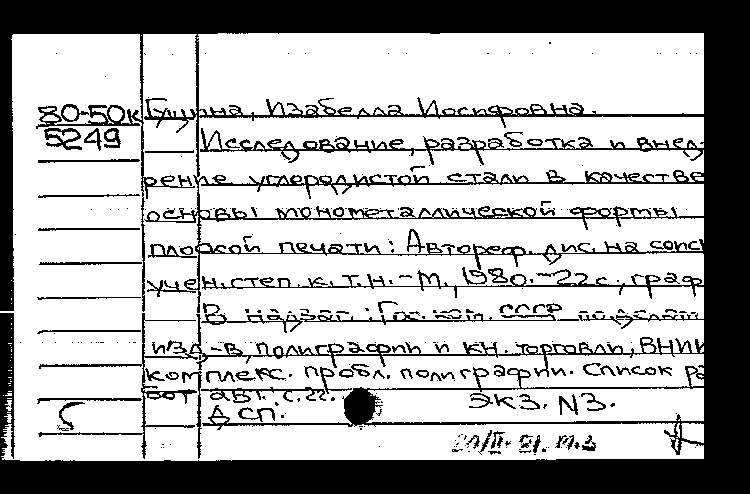 80-50к
5249
Гущина, Изабелла Иосифовна.
Исследование, разработка и внед-
рение углеродистой стали в качестве
основы монометаллической формы
плоской печати: Автореф. дис. на соиск
учен. степ. к. т. н. - М., 1980. - 22 с., граф
В надзаг.: Гос. ком. СССР по делам
изд-в, полиграфии и кн. торговли, ВНИИ
комплекс. пробл. полиграфии. Список ра
бот авт.: с. 22.
ДСП. Экз. N3.